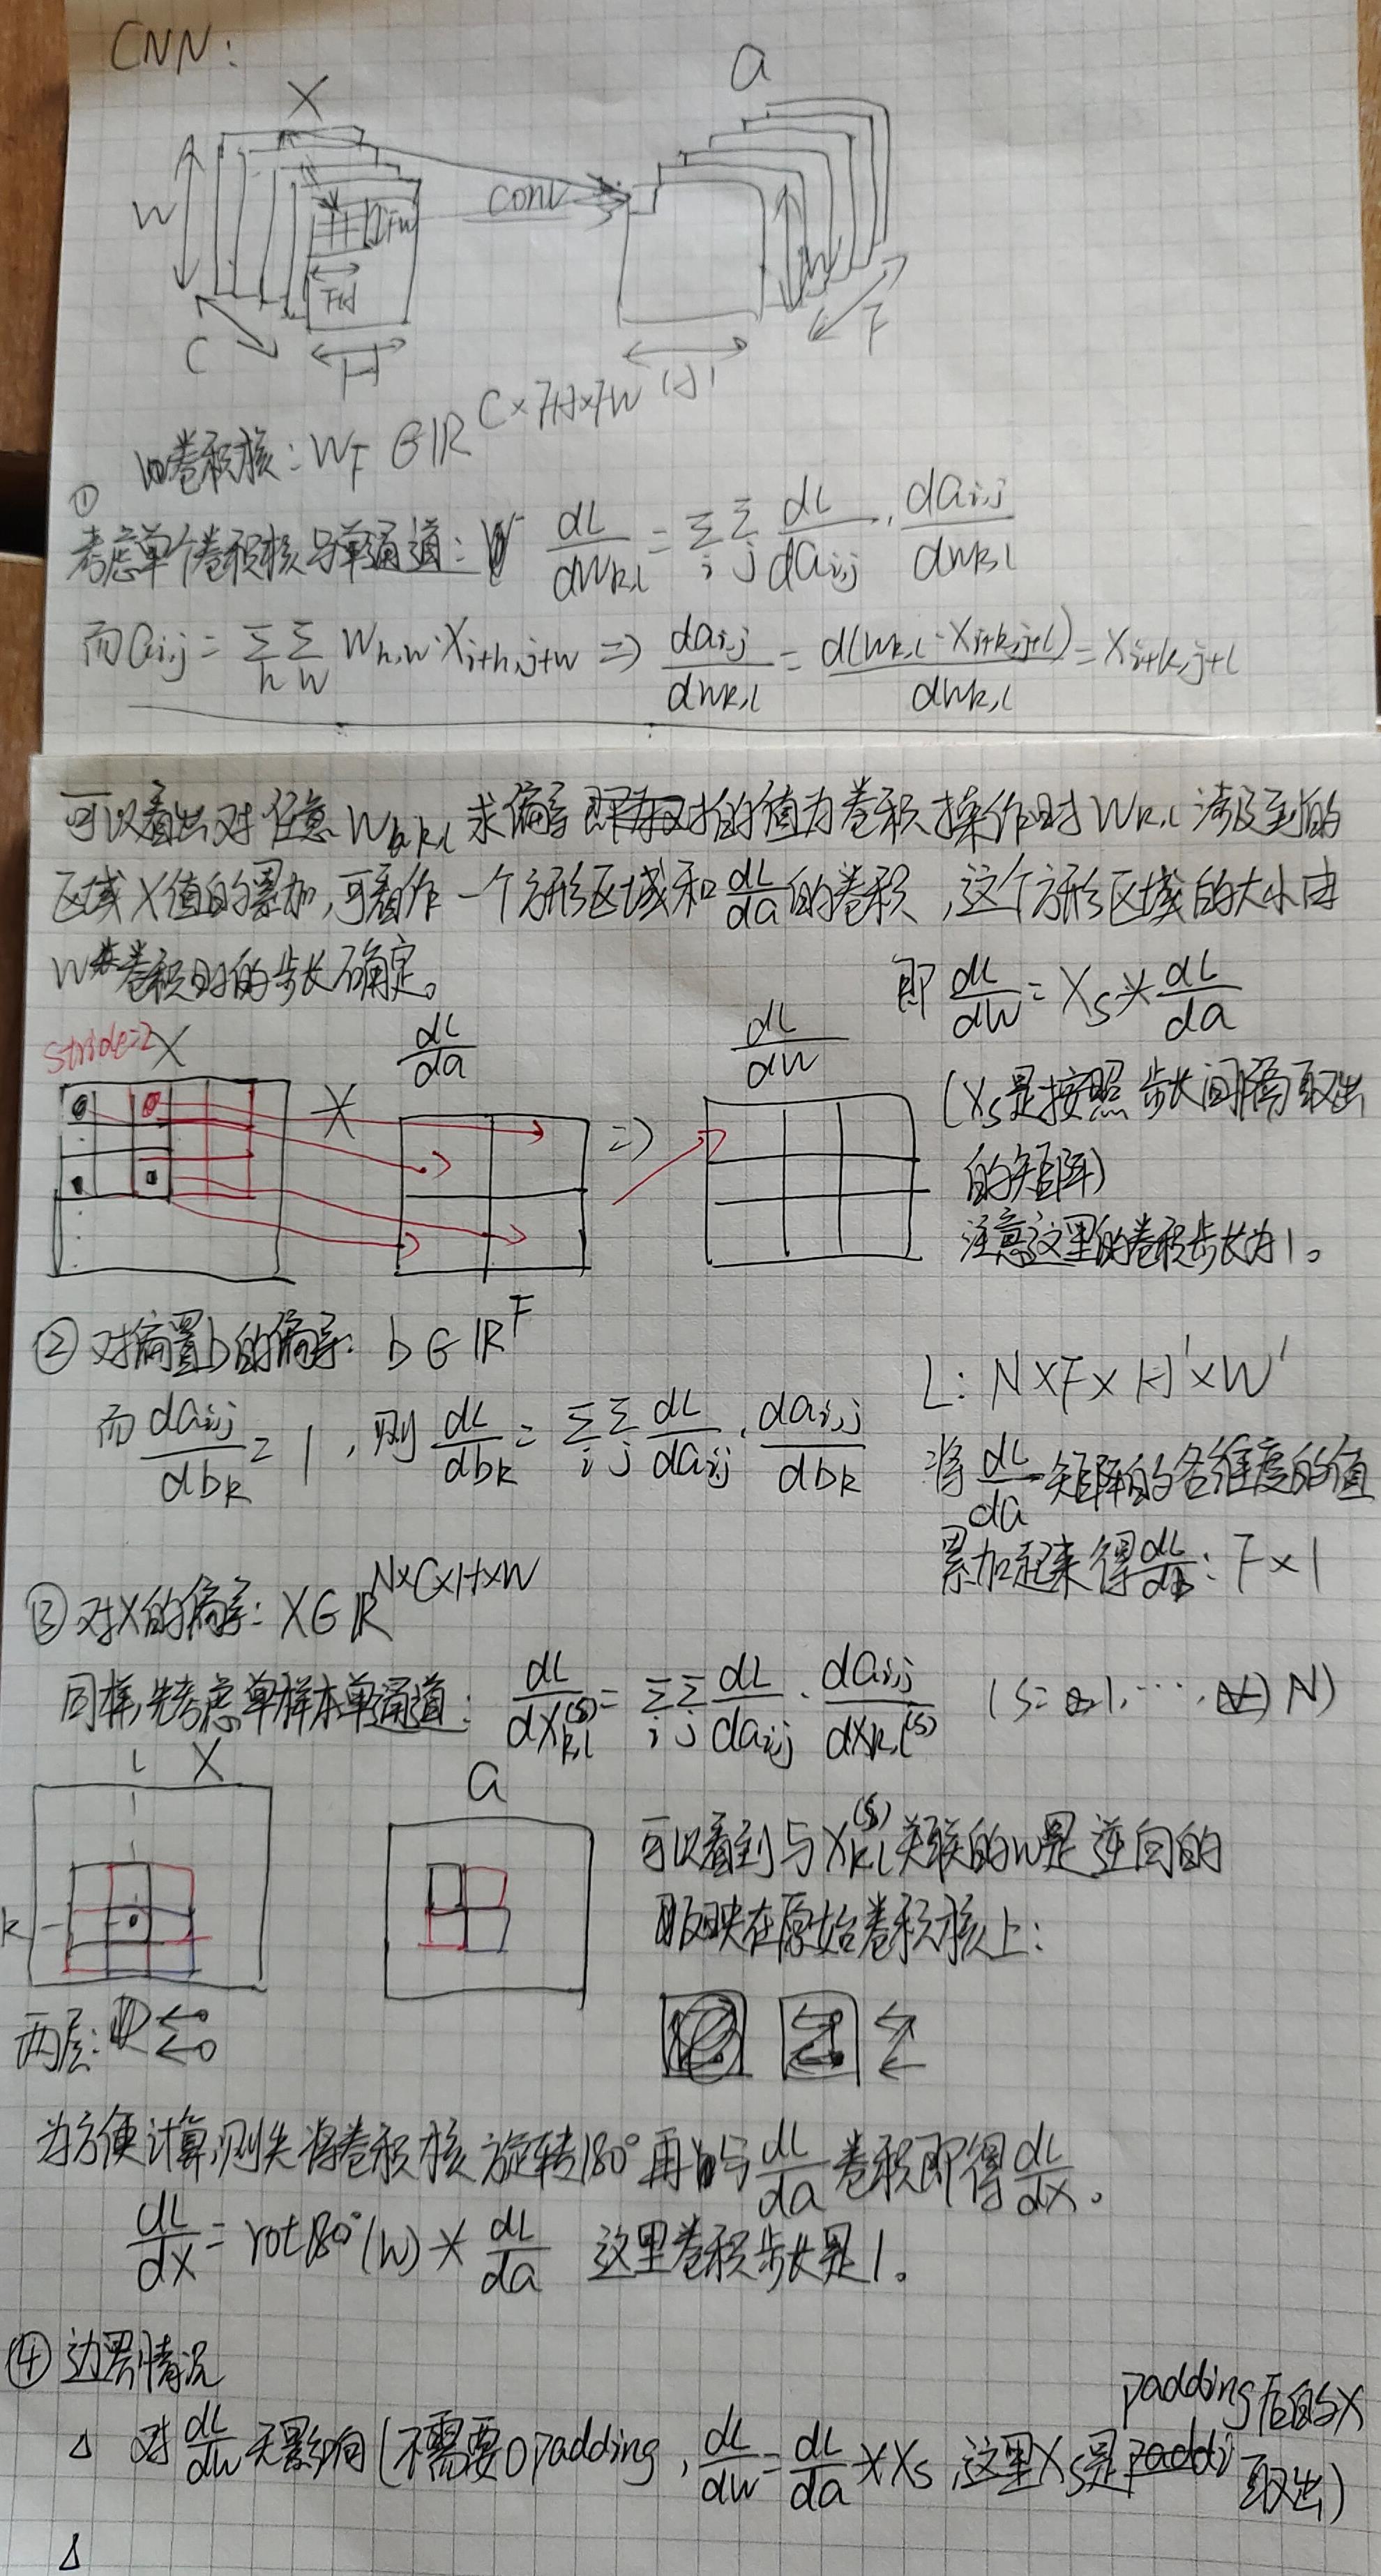 CNN:
X
a
W
FW
FH
C
H
conv
W'
H'
F
卷积核: W_F ∈ ℝ^{C×FH×FW}
①
考虑单个卷积核与单通道: dL/dw_{k,l} = Σ_i Σ_j dL/da_{i,j} · da_{i,j}/dw_{k,l}
而 a_{i,j} = Σ_h Σ_w w_{h,w} · x_{i+h,j+w} ⇒ da_{i,j}/dw_{k,l} = d(w_{k,l} · x_{i+k,j+l})/dw_{k,l} = x_{i+k,j+l}
可以看出对任意 w_{k,l} 求偏导 的值为卷积操作时 w_{k,l} 涉及到的
区域X值的累加,可看作一个方形区域和 dL/da 的卷积,这个方形区域的大小由
W卷积时的步长确定。
即 dL/dW = X_S * dL/da
stride=2 X
*
dL/da
⇒
dL/dW
(X_S是按照步长间隔取出
的矩阵)
注意这里的卷积步长为1。
② 对偏置b的偏导: b ∈ ℝ^F
而 da_{i,j}/db_k = 1, 则 dL/db_k = Σ_i Σ_j dL/da_{i,j} · da_{i,j}/db_k
L: N×F×H'×W'
将 dL/da 矩阵的各维度的值
累加起来得 dL/db: F×1
③ 对X的偏导: X ∈ ℝ^{N×C×H×W}
同样,先考虑单样本单通道: dL/dx_{k,l}^{(s)} = Σ_i Σ_j dL/da_{i,j} · da_{i,j}/dx_{k,l}^{(s)} (s=1,…,N)
l
X
a
k
可以看到与 x_{k,l}^{(s)} 关联的w是逆向的
反映在原始卷积核上:
两层:
为方便计算,则先将卷积核旋转180°再与 dL/da 卷积即得 dL/dx。
dL/dx = rot180°(w) * dL/da 这里卷积步长是1。
④ 边界情况
△ 对 dL/dw 无影响(不需要0padding, dL/dw = dL/da * X_S, 这里X_S是padding后的X取出)
△